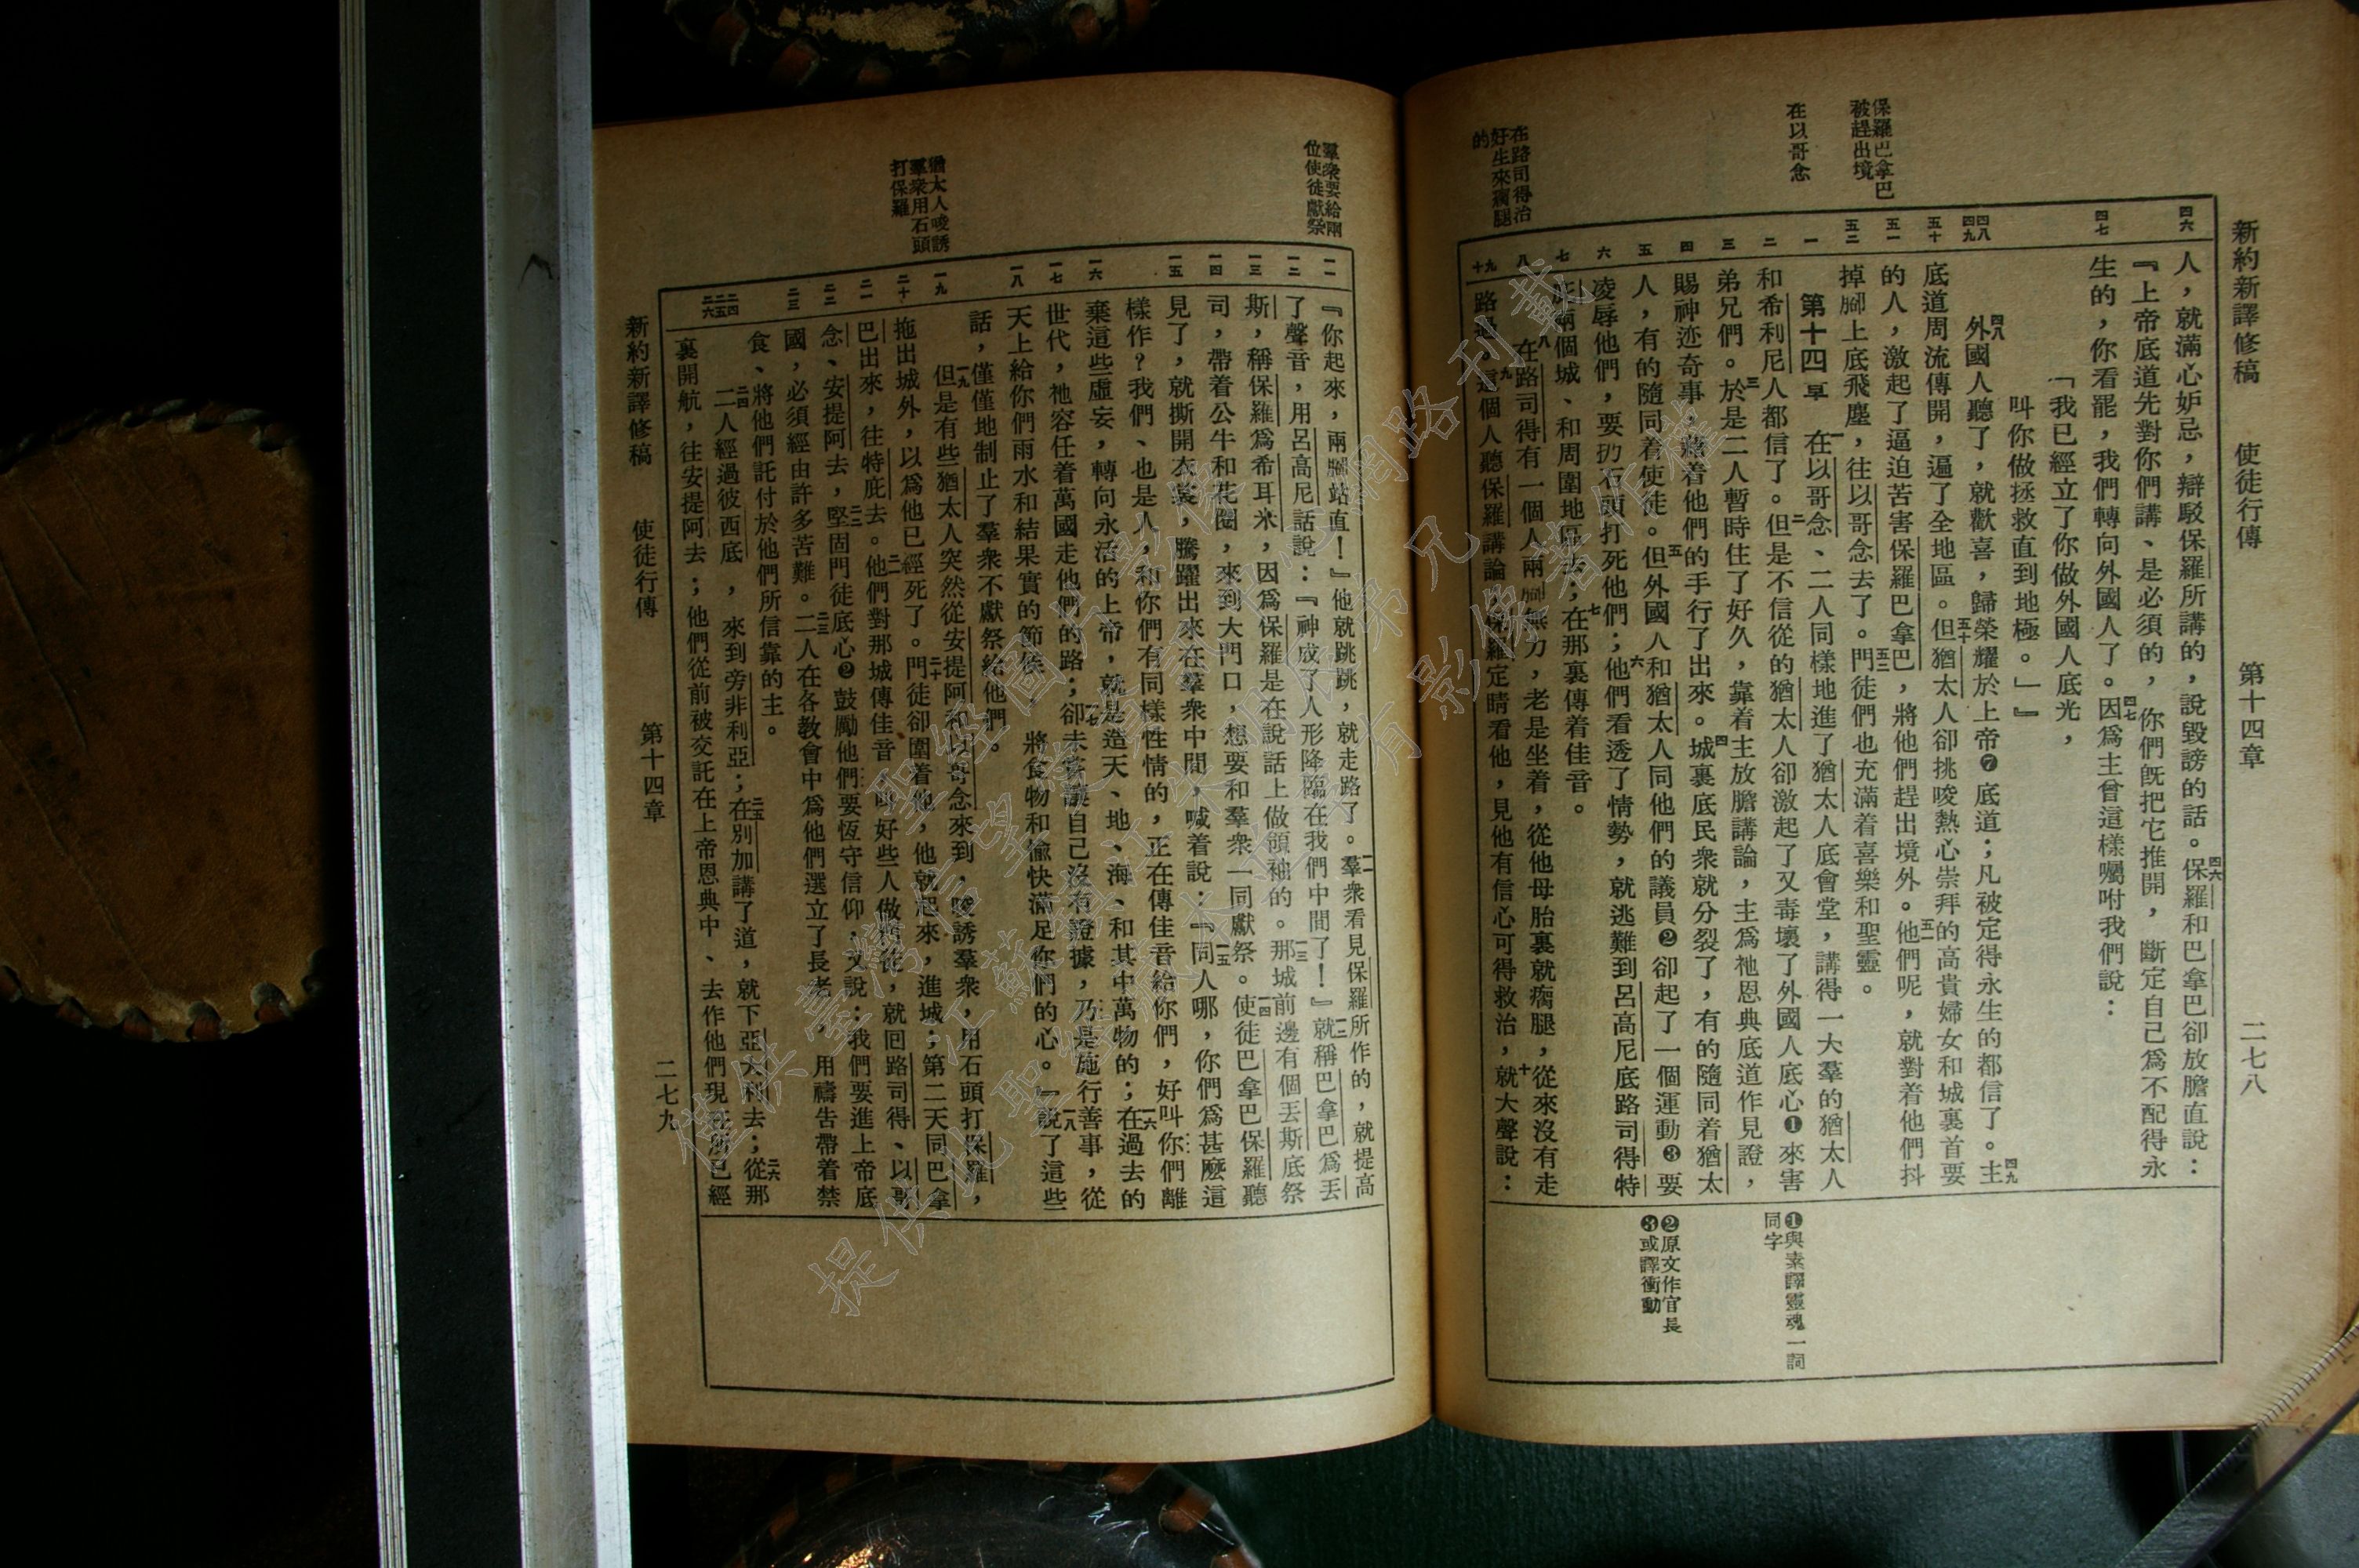 新約新譯修稿　使徒行傳　第十四章　二七八
保羅巴拿巴
被趕出境
在以哥念
在路司得治
好生來瘸腿
的
四六
四七
四八
四九
五十
五一
五二
一
二
三
四
五
六
七
八
九
十
人，就滿心妒忌，辯駁保羅所講的，說毀謗的話。四六保羅和巴拿巴卻放膽直說：
『上帝底道先對你們講、是必須的，你們旣把它推開，斷定自己爲不配得永
生的，你看罷，我們轉向外國人了。四七因爲主曾這樣囑咐我們說：
「我已經立了你做外國人底光，
叫你做拯救直到地極。」』
四八外國人聽了，就歡喜，歸榮耀於上帝❼底道；凡被定得永生的都信了。四九主
底道周流傳開，遍了全地區。五十但猶太人卻挑唆熱心崇拜的高貴婦女和城裏首要
的人，激起了逼迫苦害保羅巴拿巴，將他們趕出境外。五一他們呢，就對着他們抖
掉腳上底飛塵，往以哥念去了。五二門徒們也充滿着喜樂和聖靈。
第十四章　一在以哥念、二人同樣地進了猶太人底會堂，講得一大羣的猶太人
和希利尼人都信了。二但是不信從的猶太人卻激起了又毒壞了外國人底心❶來害
弟兄們。三於是二人暫時住了好久，靠着主放膽講論，主爲祂恩典底道作見證，
賜神迹奇事，藉着他們的手行了出來。四城裏底民衆就分裂了，有的隨同着猶太
人，有的隨同着使徒。五但外國人和猶太人同他們的議員❷卻起了一個運動❸要
凌辱他們，要扔石頭打死他們；六他們看透了情勢，就逃難到呂高尼底路司得特
庇兩個城、和周圍地區去，七在那裏傳着佳音。
八在路司得有一個人兩腳無力，老是坐着，從他母胎裏就瘸腿，從來沒有走
路過。九這個人聽保羅講論，保羅定睛看他，見他有信心可得救治，十就大聲說：
❶與素譯靈魂一詞
同字
❷原文作官長
❸或譯衝動
羣衆要給兩
位使徒獻祭
猶太人唆誘
羣衆用石頭
打保羅
一一
一二
一三
一四
一五
一六
一七
一八
一九
二十
二一
二二
二三
二四
二五
二六
『你起來，兩腳站直！』他就跳跳，就走路了。一一羣衆看見保羅所作的，就提高
了聲音，用呂高尼話說：『神成了人形降臨在我們中間了！』一二就稱巴拿巴爲丟
斯，稱保羅爲希耳米，因爲保羅是在說話上做領袖的。一三那城前邊有個丟斯底祭
司，帶着公牛和花圈，來到大門口，想要和羣衆一同獻祭。一四使徒巴拿巴保羅聽
見了，就撕開衣裳，騰躍出來在羣衆中間，喊着說：一五『同人哪，你們爲甚麼這
樣作？我們、也是人，和你們有同樣性情的，正在傳佳音給你們，好叫你們離
棄這些虛妄，轉向永活的上帝，就是造天、地、海、和其中萬物的；一六在過去的
世代，祂容任着萬國走他們的路；一七卻未嘗讓自己沒有證據，乃是施行善事，從
天上給你們雨水和結果實的節候，將食物和愉快滿足你們的心。』一八說了這些
話，僅僅地制止了羣衆不獻祭給他們。
一九但是有些猶太人突然從安提阿和以哥念來到，唆誘羣衆，用石頭打保羅，
拖出城外，以爲他已經死了。二十門徒卻圍着他，他就起來，進城；第二天同巴拿
巴出來，往特庇去。二一他們對那城傳佳音，叫好些人做門徒，就回路司得、以哥
念、安提阿去，二二堅固門徒底心❷鼓勵他們要恆守信仰，又說：我們要進上帝底
國，必須經由許多苦難。二三二人在各教會中爲他們選立了長老，用禱告帶着禁
食、將他們託付於他們所信靠的主。
二四二人經過彼西底，來到旁非利亞；二五在別加講了道，就下亞大利去；二六從那
裏開航，往安提阿去；他們從前被交託在上帝恩典中、去作他們現在所已經
新約新譯修稿　使徒行傳　第十四章　二七九